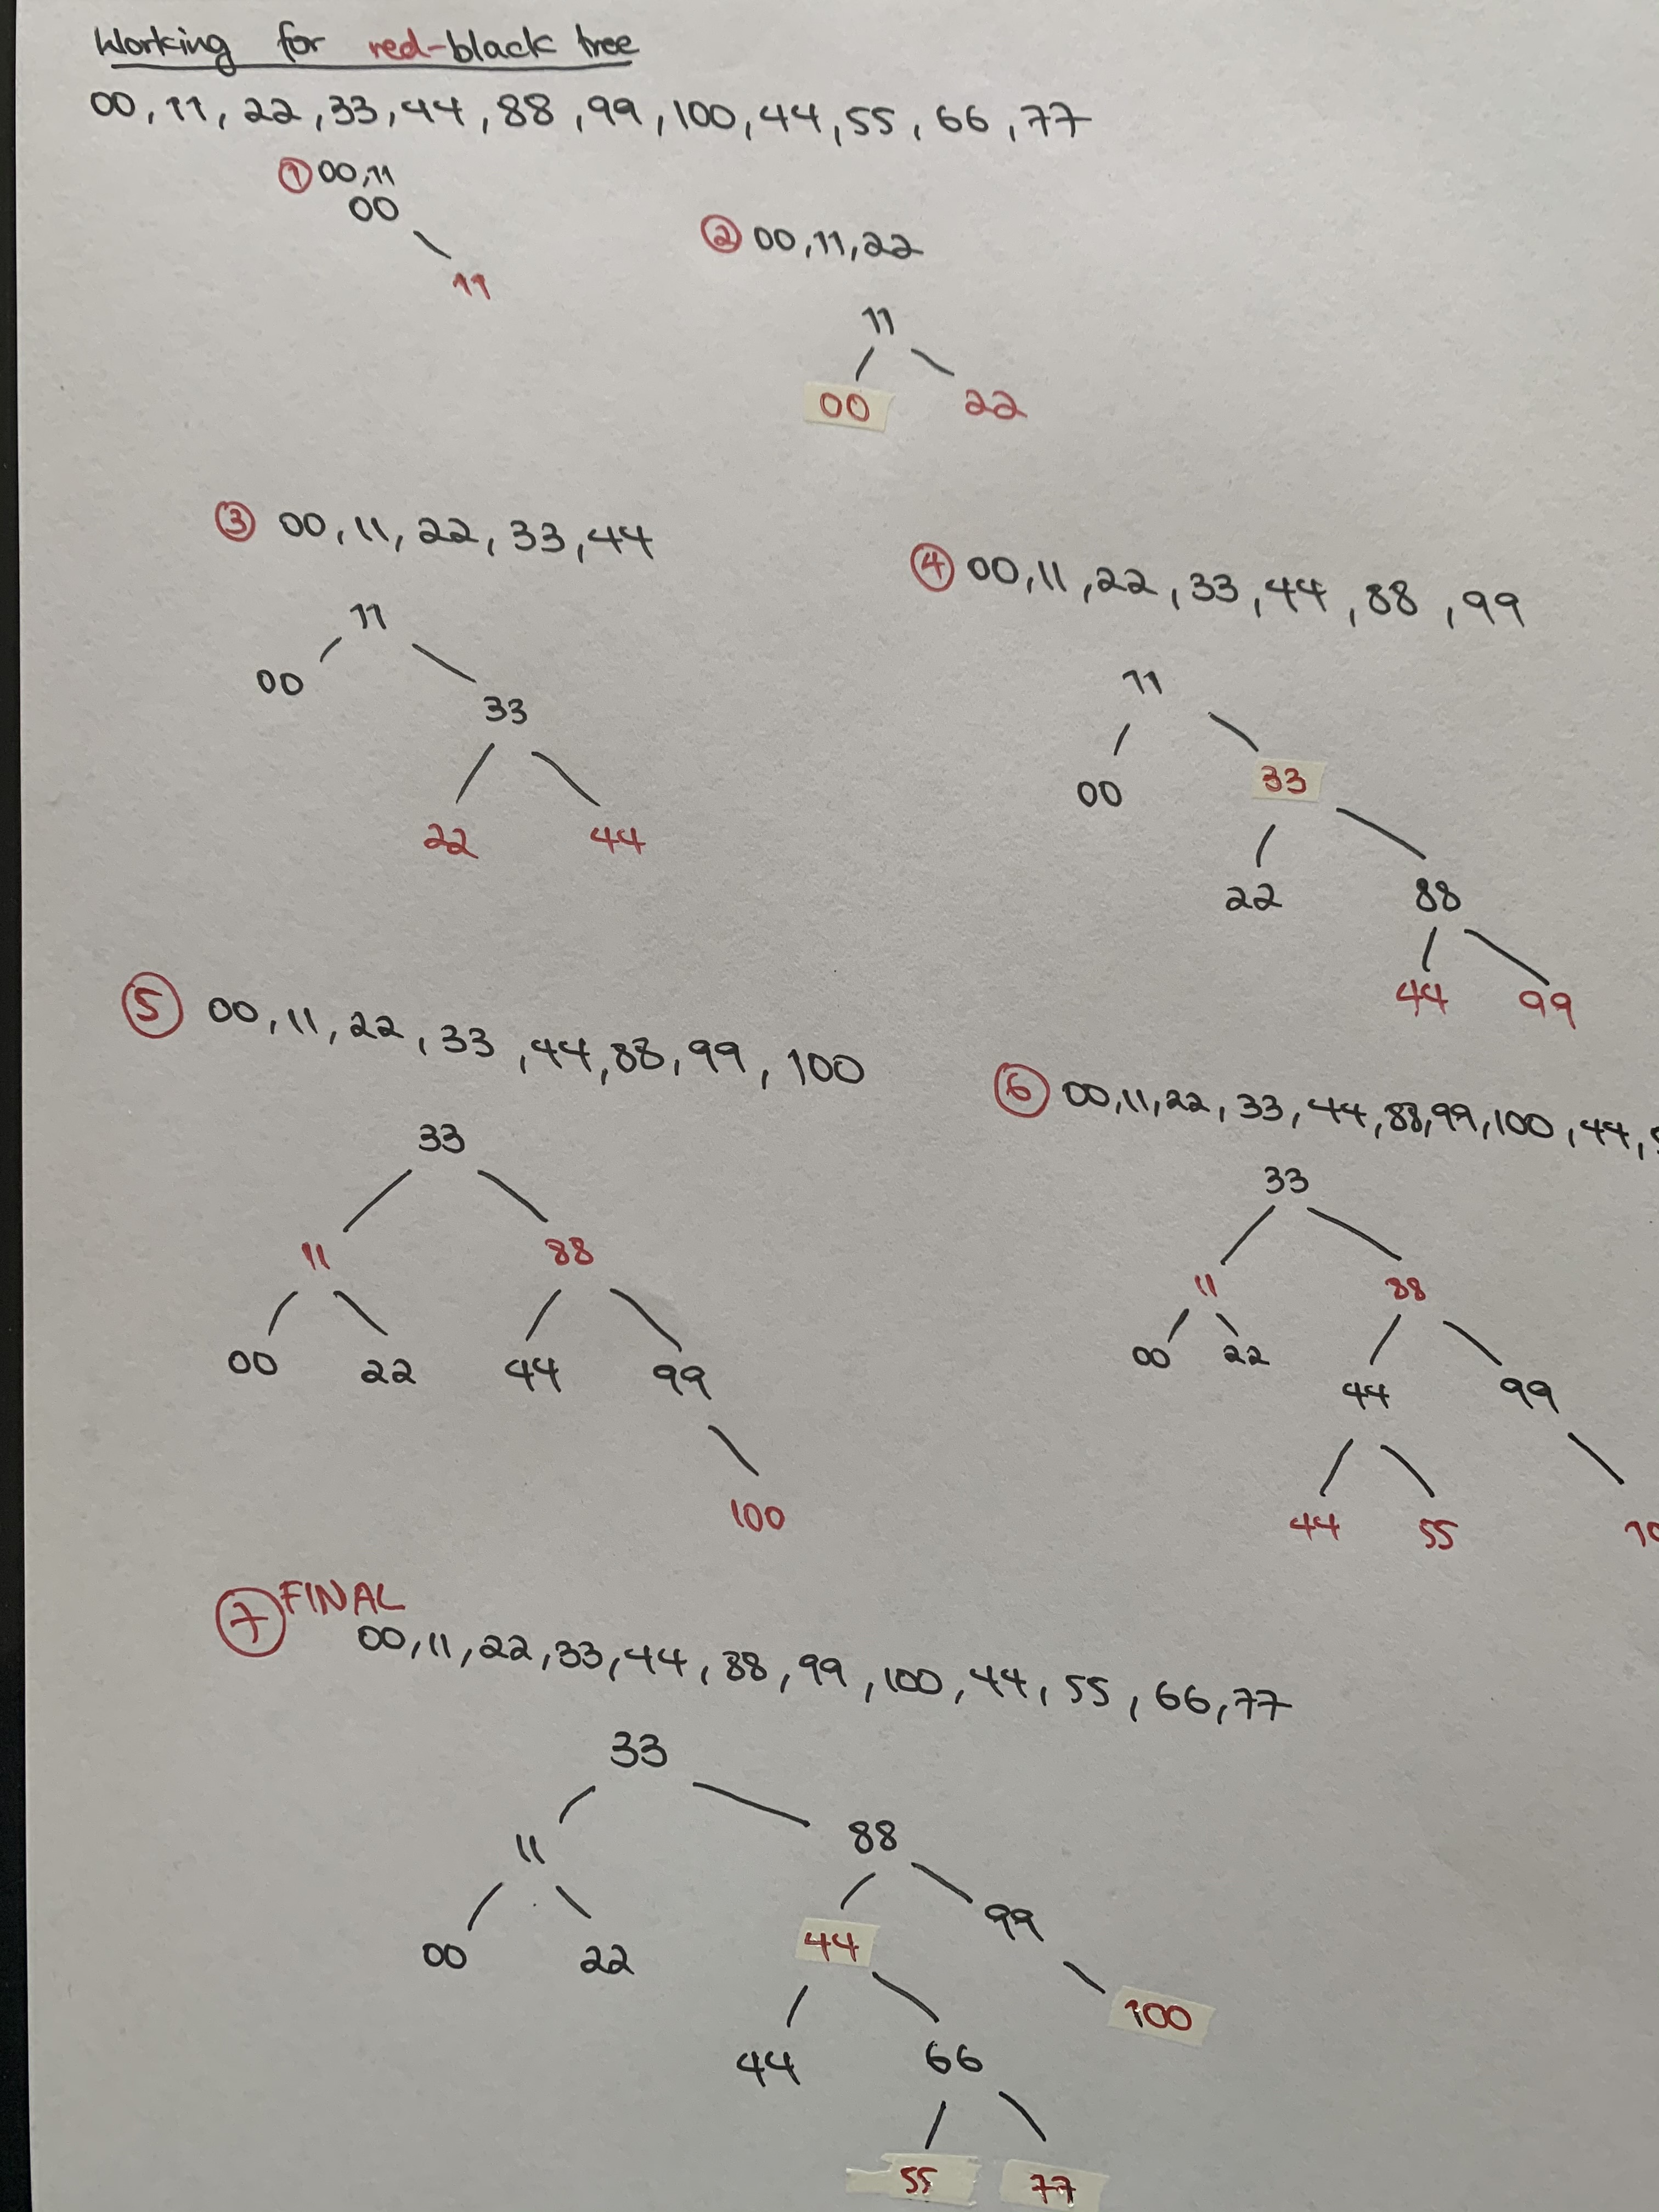 Working for red-black tree
00, 11, 22, 33, 44, 88, 99, 100, 44, 55, 66, 77
① 00, 11
00
11
② 00, 11, 22
11
00 22
③ 00, 11, 22, 33, 44
11
00
33
22 44
④ 00, 11, 22, 33, 44, 88, 99
11
00 33
22 88
44 99
⑤ 00, 11, 22, 33, 44, 88, 99, 100
33
11 88
00 22 44 99
100
⑥ 00, 11, 22, 33, 44, 88, 99, 100, 44,
33
11 88
00 22
44 99
44 55
⑦ FINAL
00, 11, 22, 33, 44, 88, 99, 100, 44, 55, 66, 77
33
11 88
00 22 44 99
100
44 66
55 77